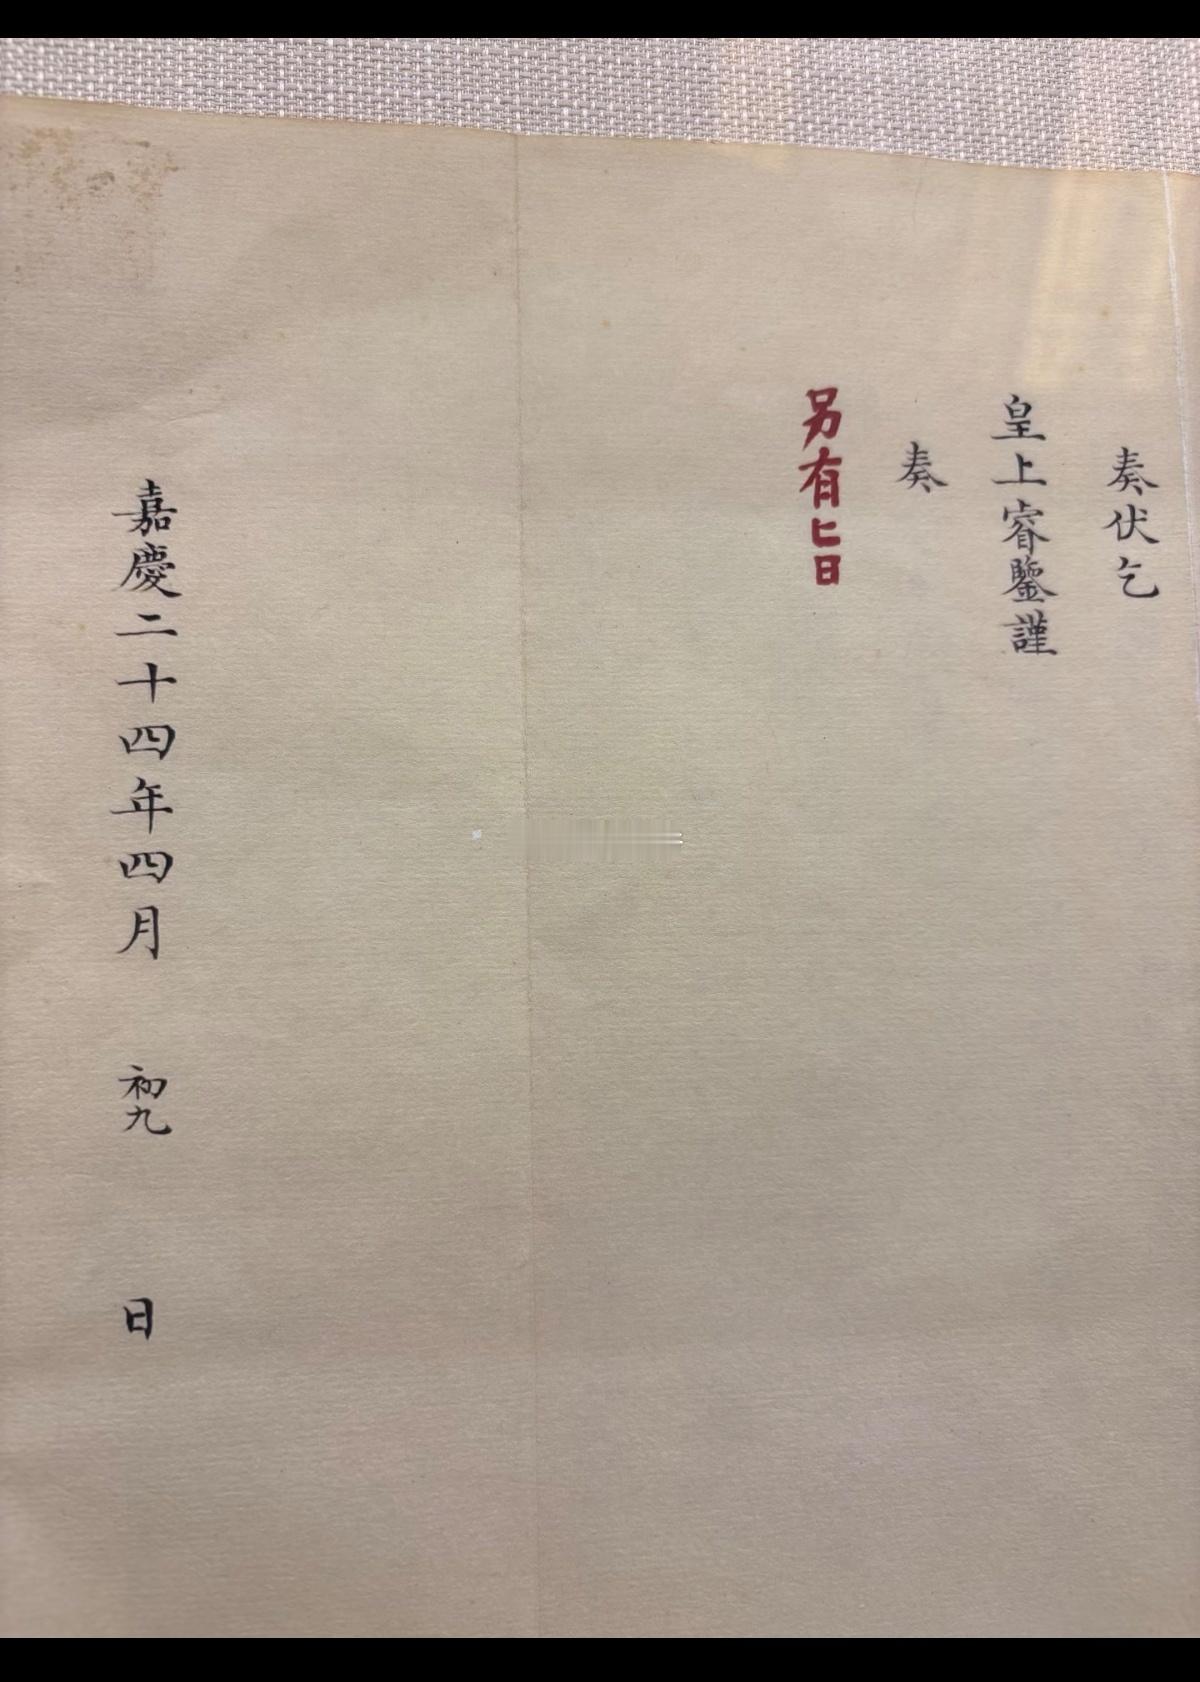 奏伏乞
皇上睿鑒謹
奏
另有旨
嘉慶二十四年四月初九日